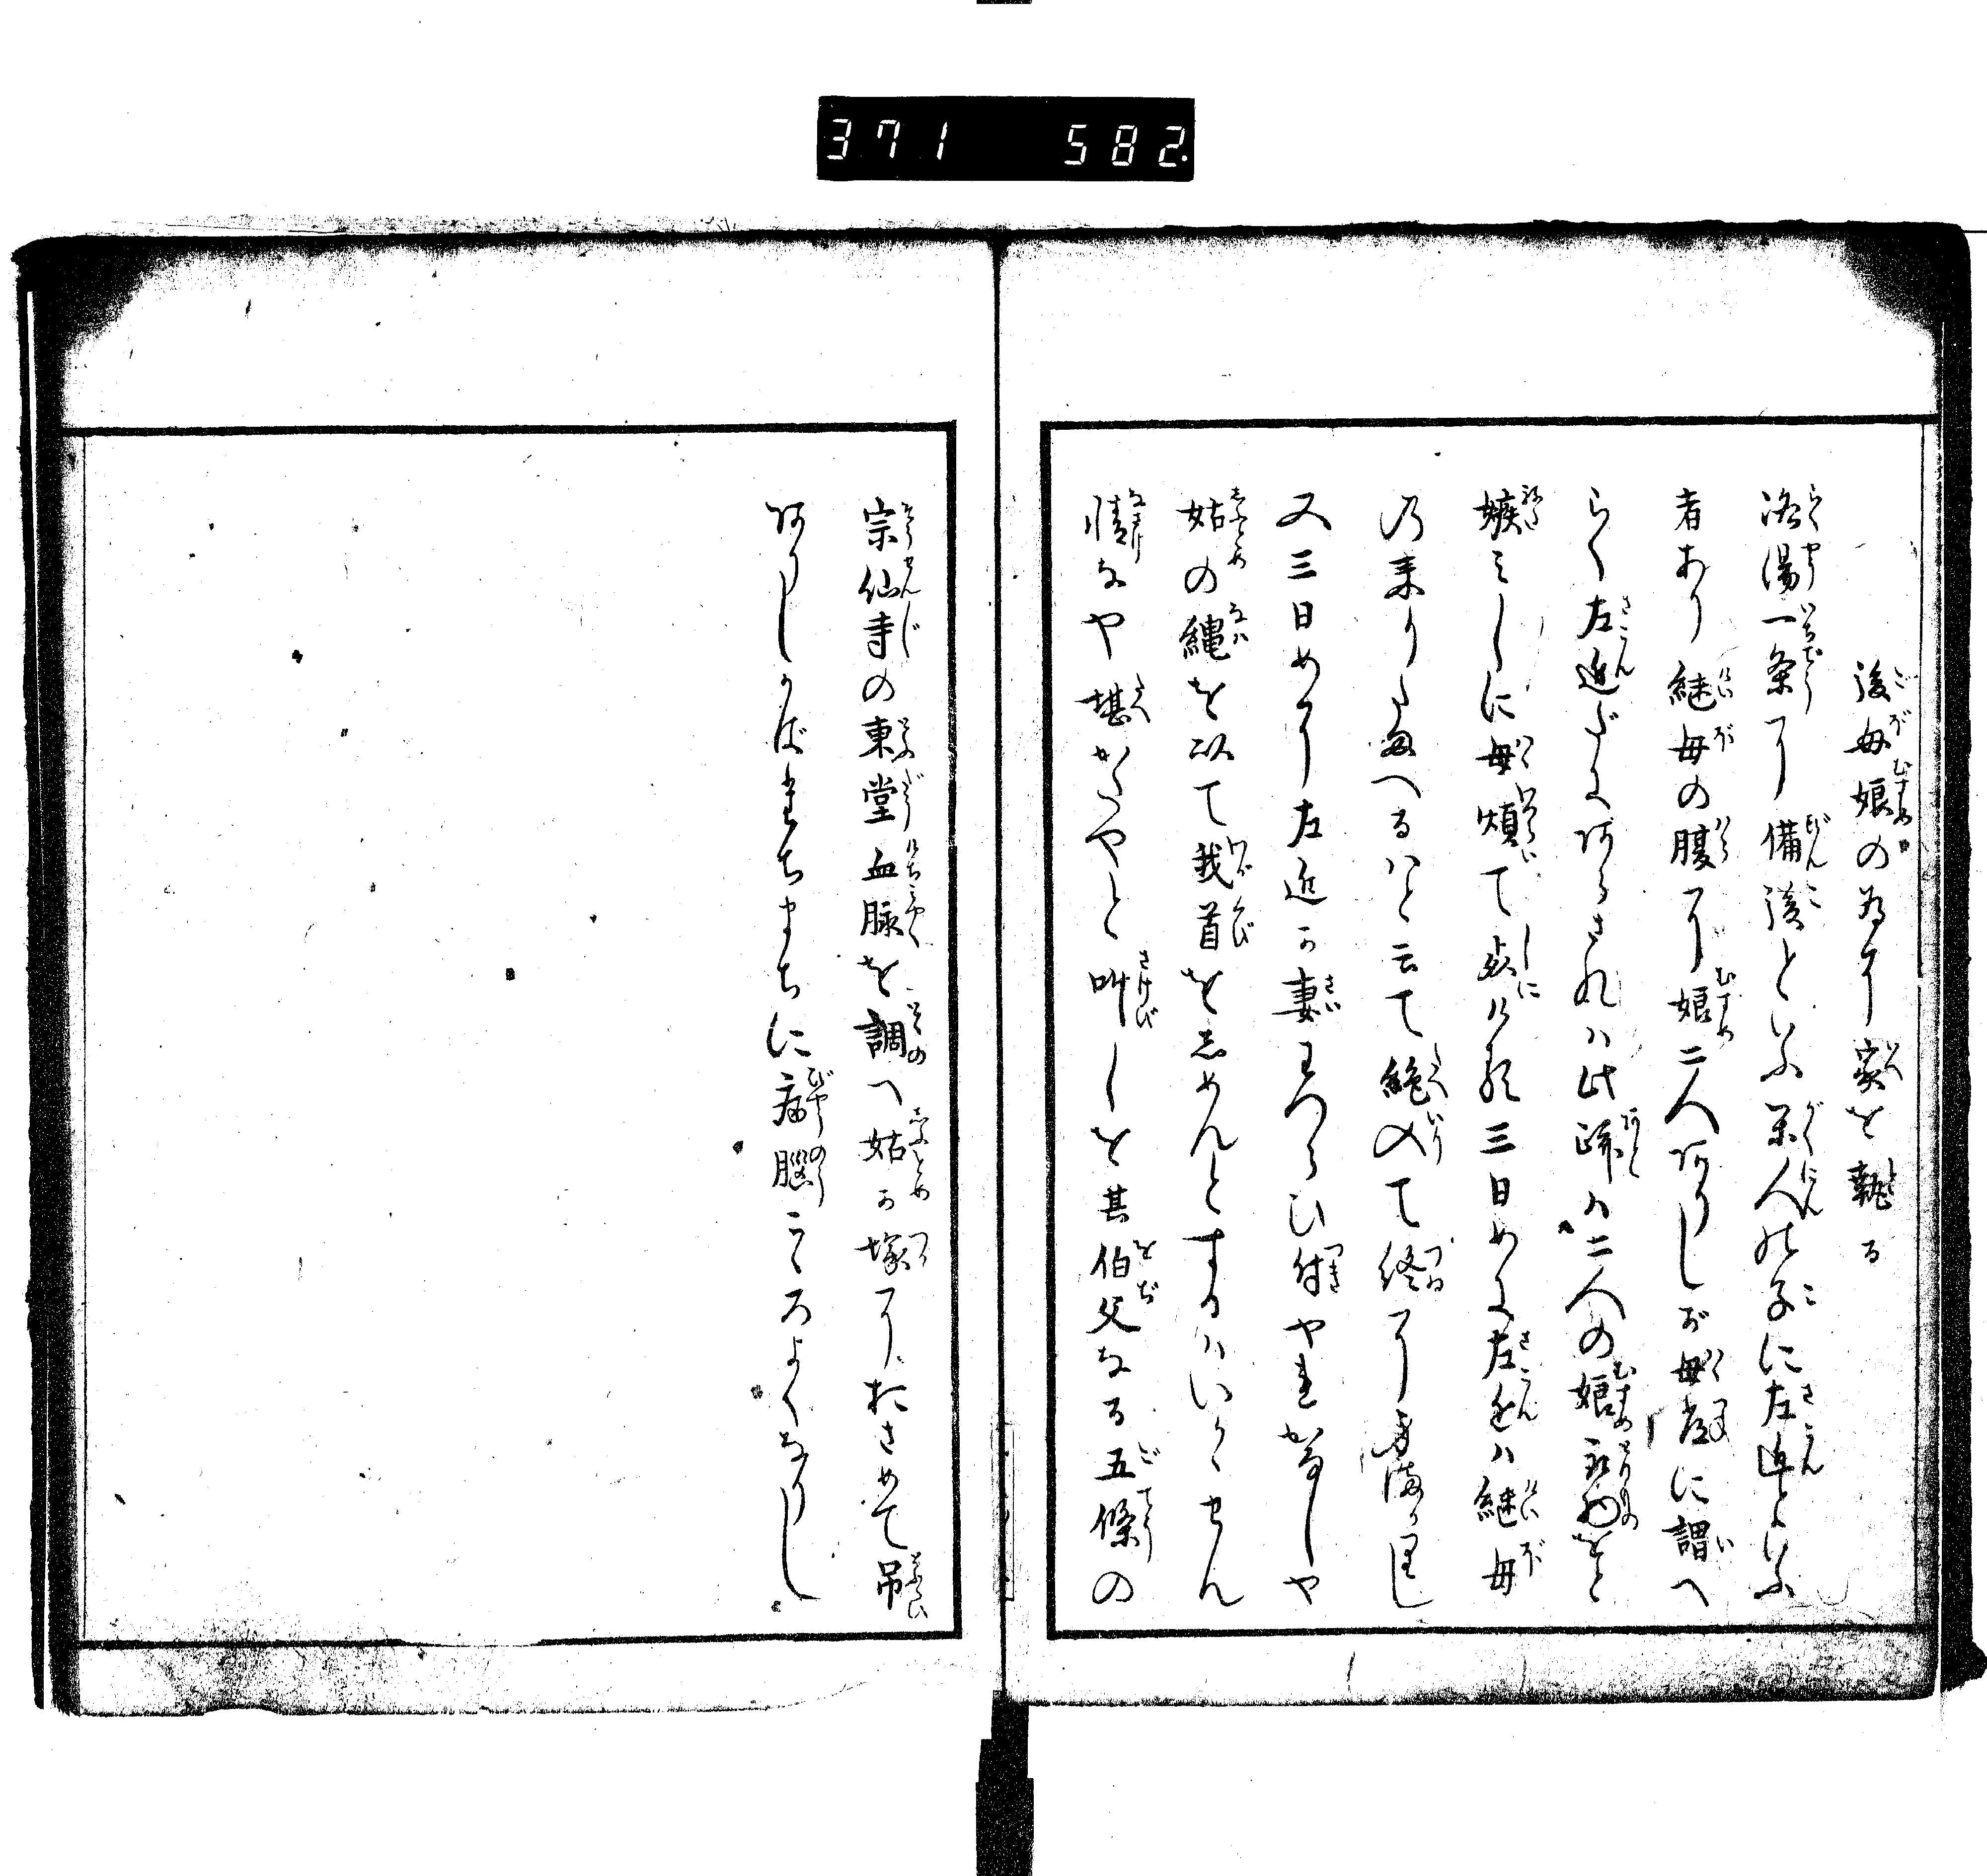 371 582
後母娘の為に家を執る
洛陽一条に備後といふ楽人の子に左近といふ
者あり継母の腹に娘二人ありしが母常に謂へ
らく左近だにあらされハ此跡ハ二人の娘取物をと
嫉ミしに母煩て死けり三日めに左近ハ継母
の来りたまへるハと云て絶入て終に身まかりし
又三日めに左近か妻わつらひ付やれかなしや
姑の縄を以て我首をしめんとするハいかゝせん
情なや堪かたやと叫しを其伯父なる五條の
宗仙寺の東堂血脉を調へ姑か塚におさめて吊
ありしかばたちまちに病脳こゝろよくなりし